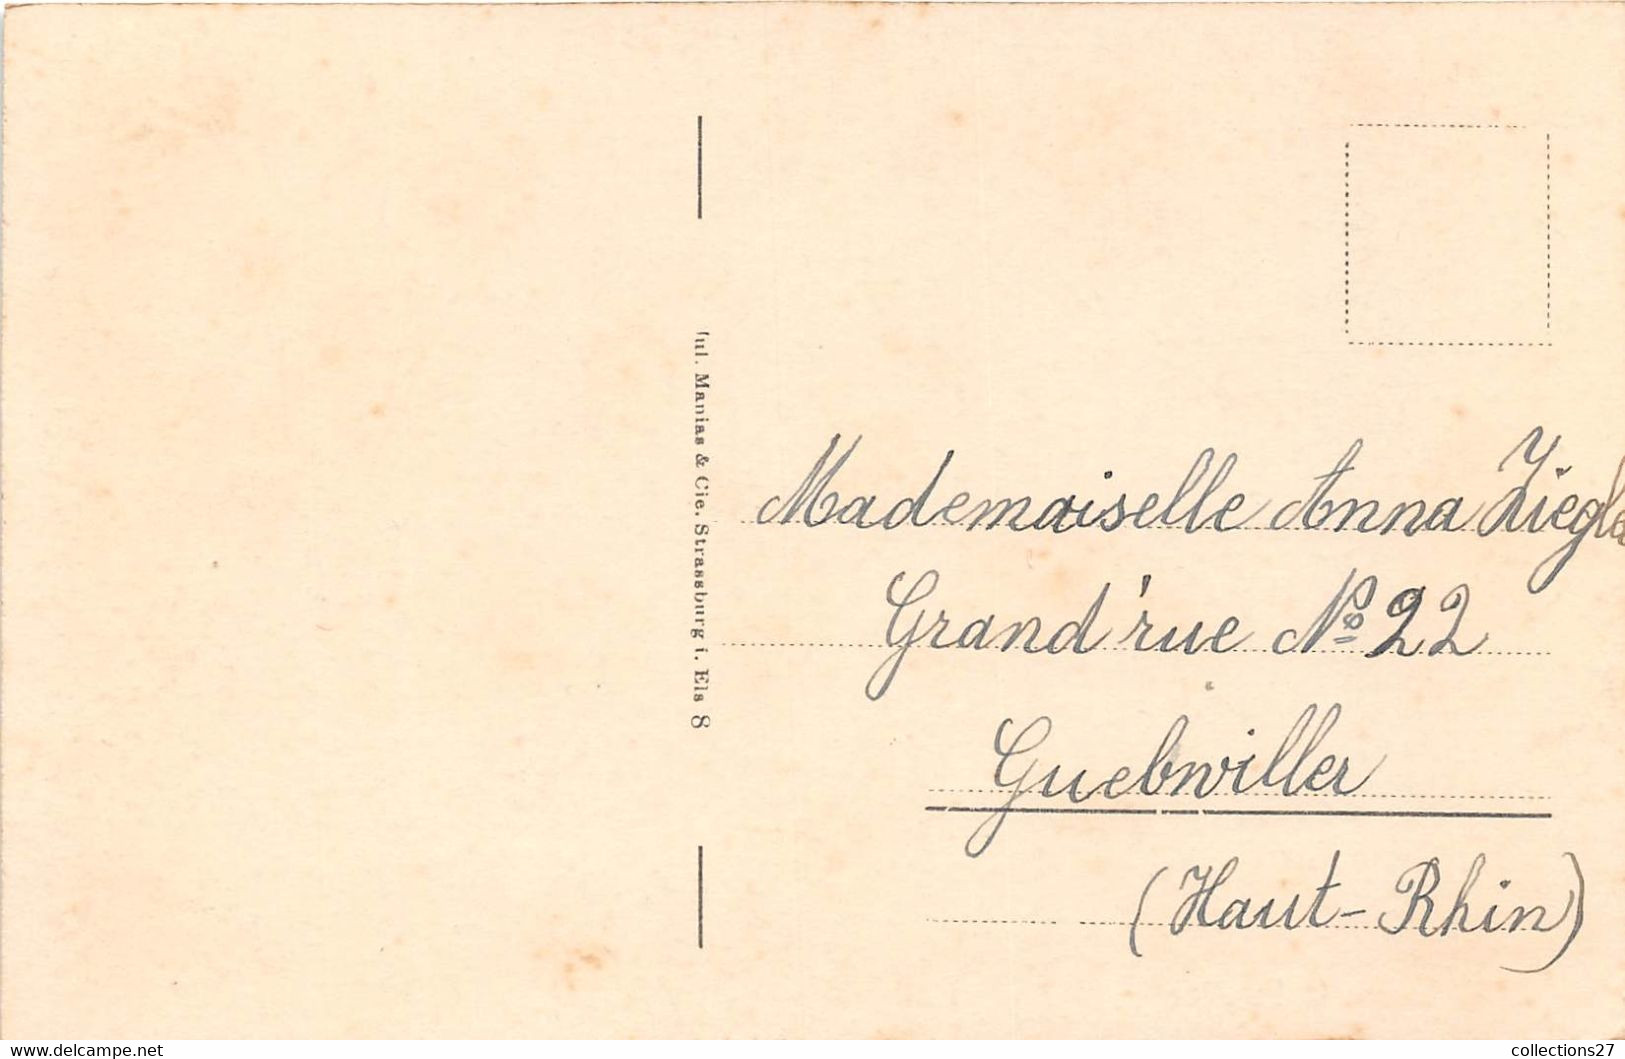 Jul. Manias & Cie. Strassburg i. Els 8
Mademoiselle Anna Ziegle
Grand'rue No 22
Guebwiller
(Haut-Rhin)
www.delcampe.net
collections27